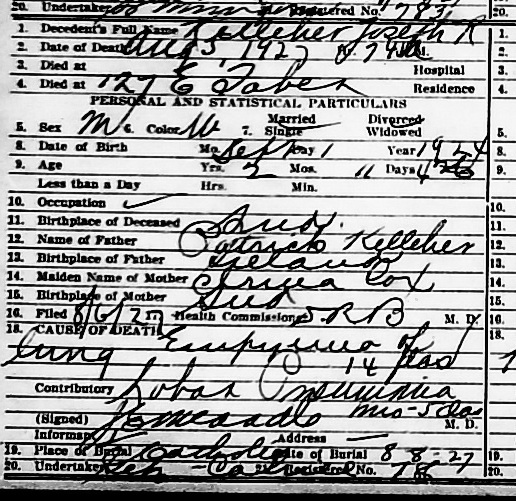 20. Undertaker Registered No.
1. Decedent's Full Name Kelleher Joseph R
2. Date of Death Aug 5 1927
3. Died at Hospital
4. Died at 127 E Taber Residence
PERSONAL AND STATISTICAL PARTICULARS
5. Sex M 6. Color W 7. Married Single Divorced Widowed
8. Date of Birth Mo. Sept Day 1 Year 1924
9. Age Yrs. 2 Mos. 11 Days 4
Less than a Day Hrs. Min.
10. Occupation ✓
11. Birthplace of Deceased Ind.
12. Name of Father Patrick Kelleher
13. Birthplace of Father Ireland
14. Maiden Name of Mother Cox
15. Birthplace of Mother Ind
16. Filed 8/6/27 17. Health Commissioner S.R.B M. D.
18. CAUSE OF DEATH Empyema of
lung 14 das
Contributory Lobar Pneumonia
mo-5 das
(Signed) M. D.
Informant Address
19. Place of Burial Date of Burial 8-8-27
20. Undertaker 21. Registered No.